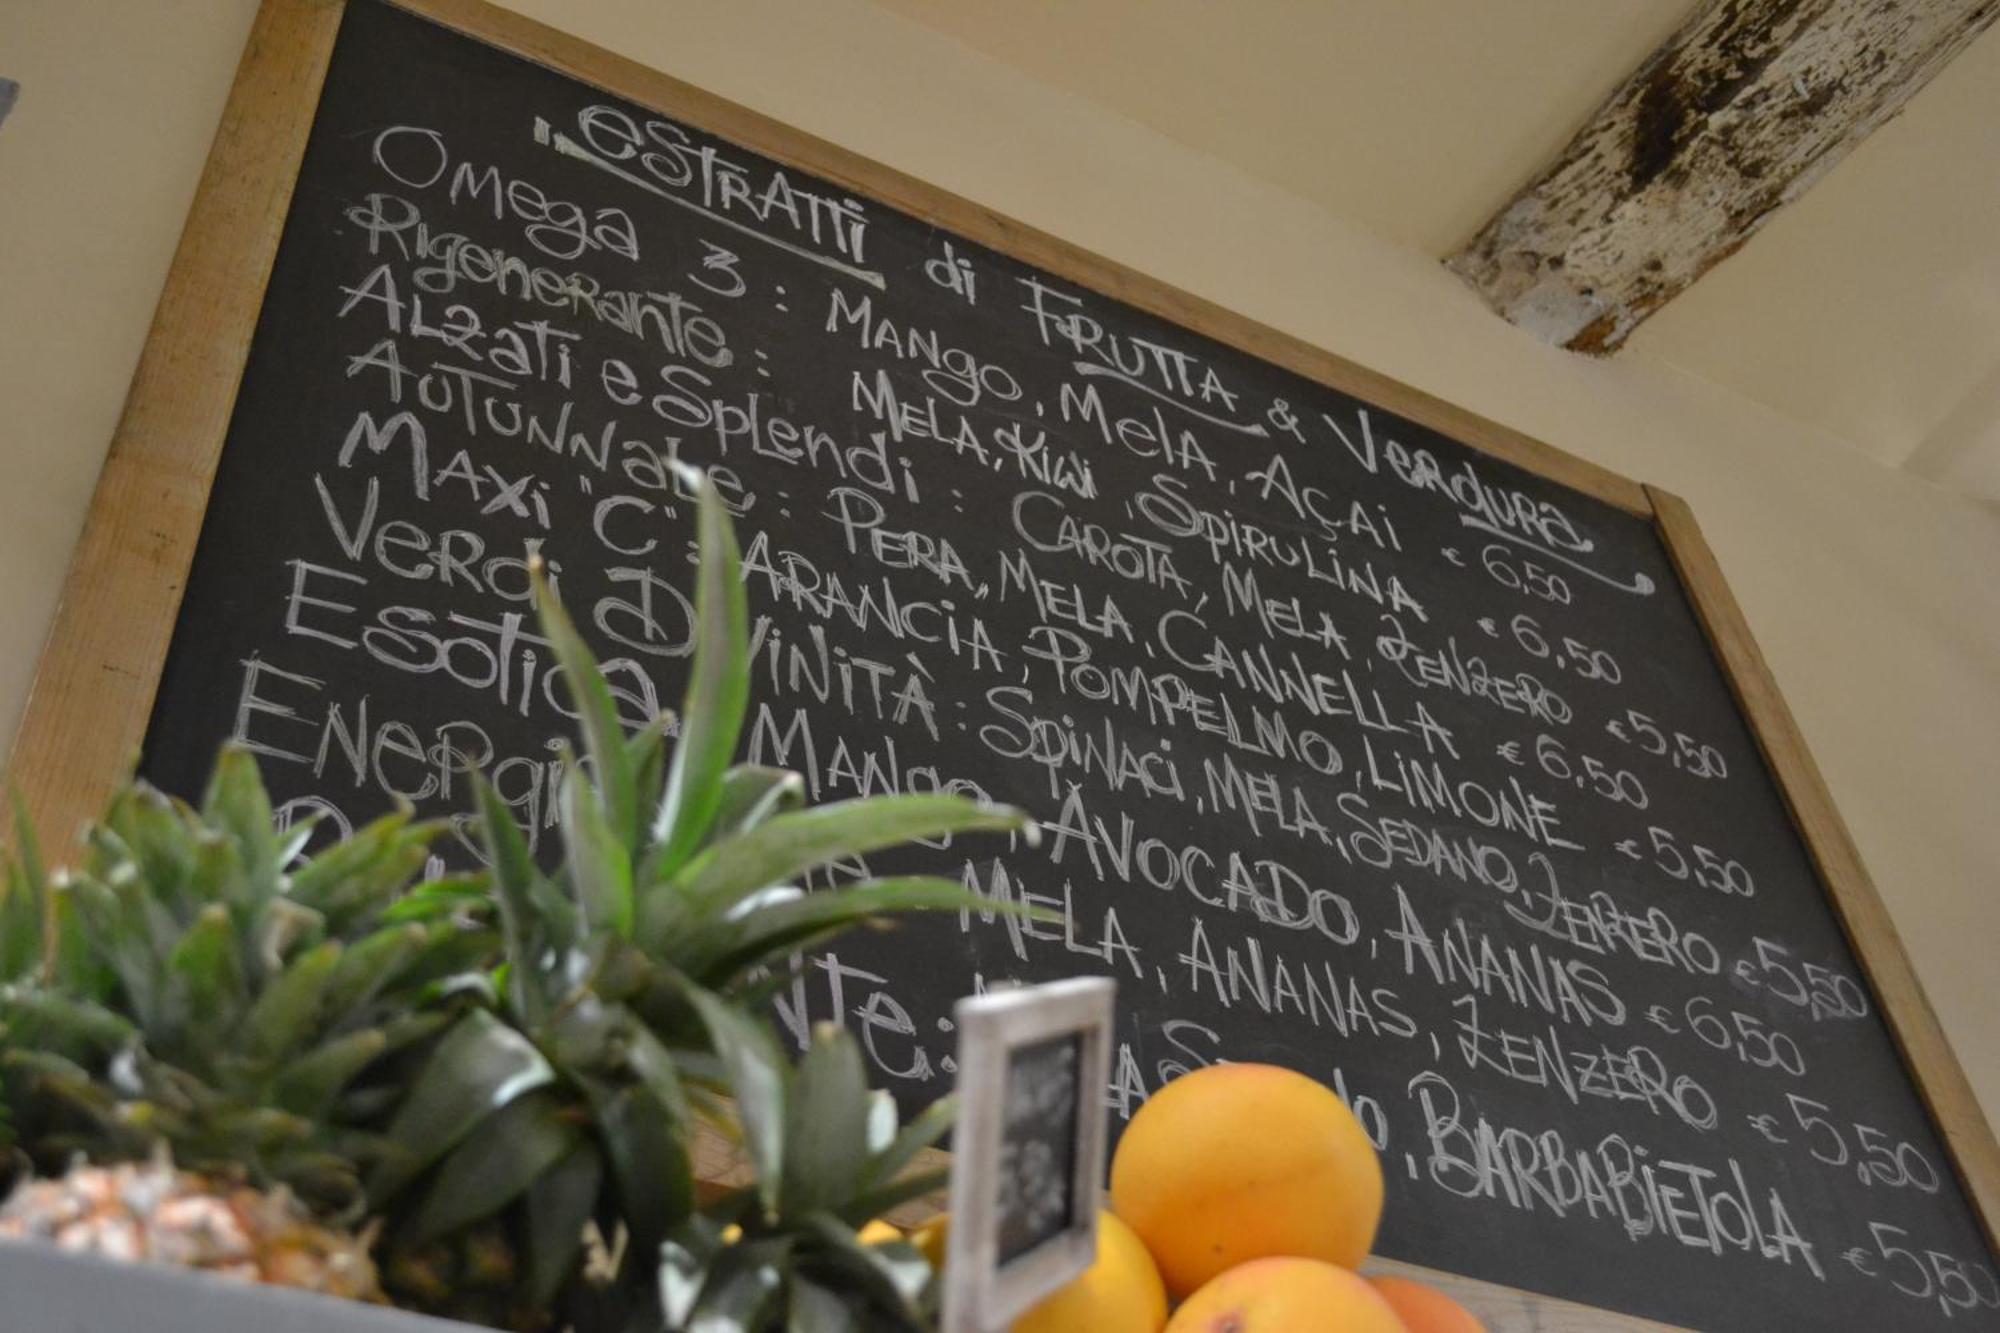 Estratti di Frutta & Verdura
Omega 3 : Mango, Mela, Açai € 6,50
Rigenerante : Mela, Kiwi, Spirulina € 6,50
Alzati e Splendi : Carota, Mela, Zenzero € 5,50
Autunnale : Pera, Mela, Cannella € 6,50
Maxi "C" : Arancia, Pompelmo, Limone € 5,50
Verdi Divinità : Spinaci, Mela, Sedano, Zenzero € 5,50
Esotica Mango, Avocado, Ananas € 6,50
Mela, Ananas, Zenzero € 5,50
Barbabietola € 5,50